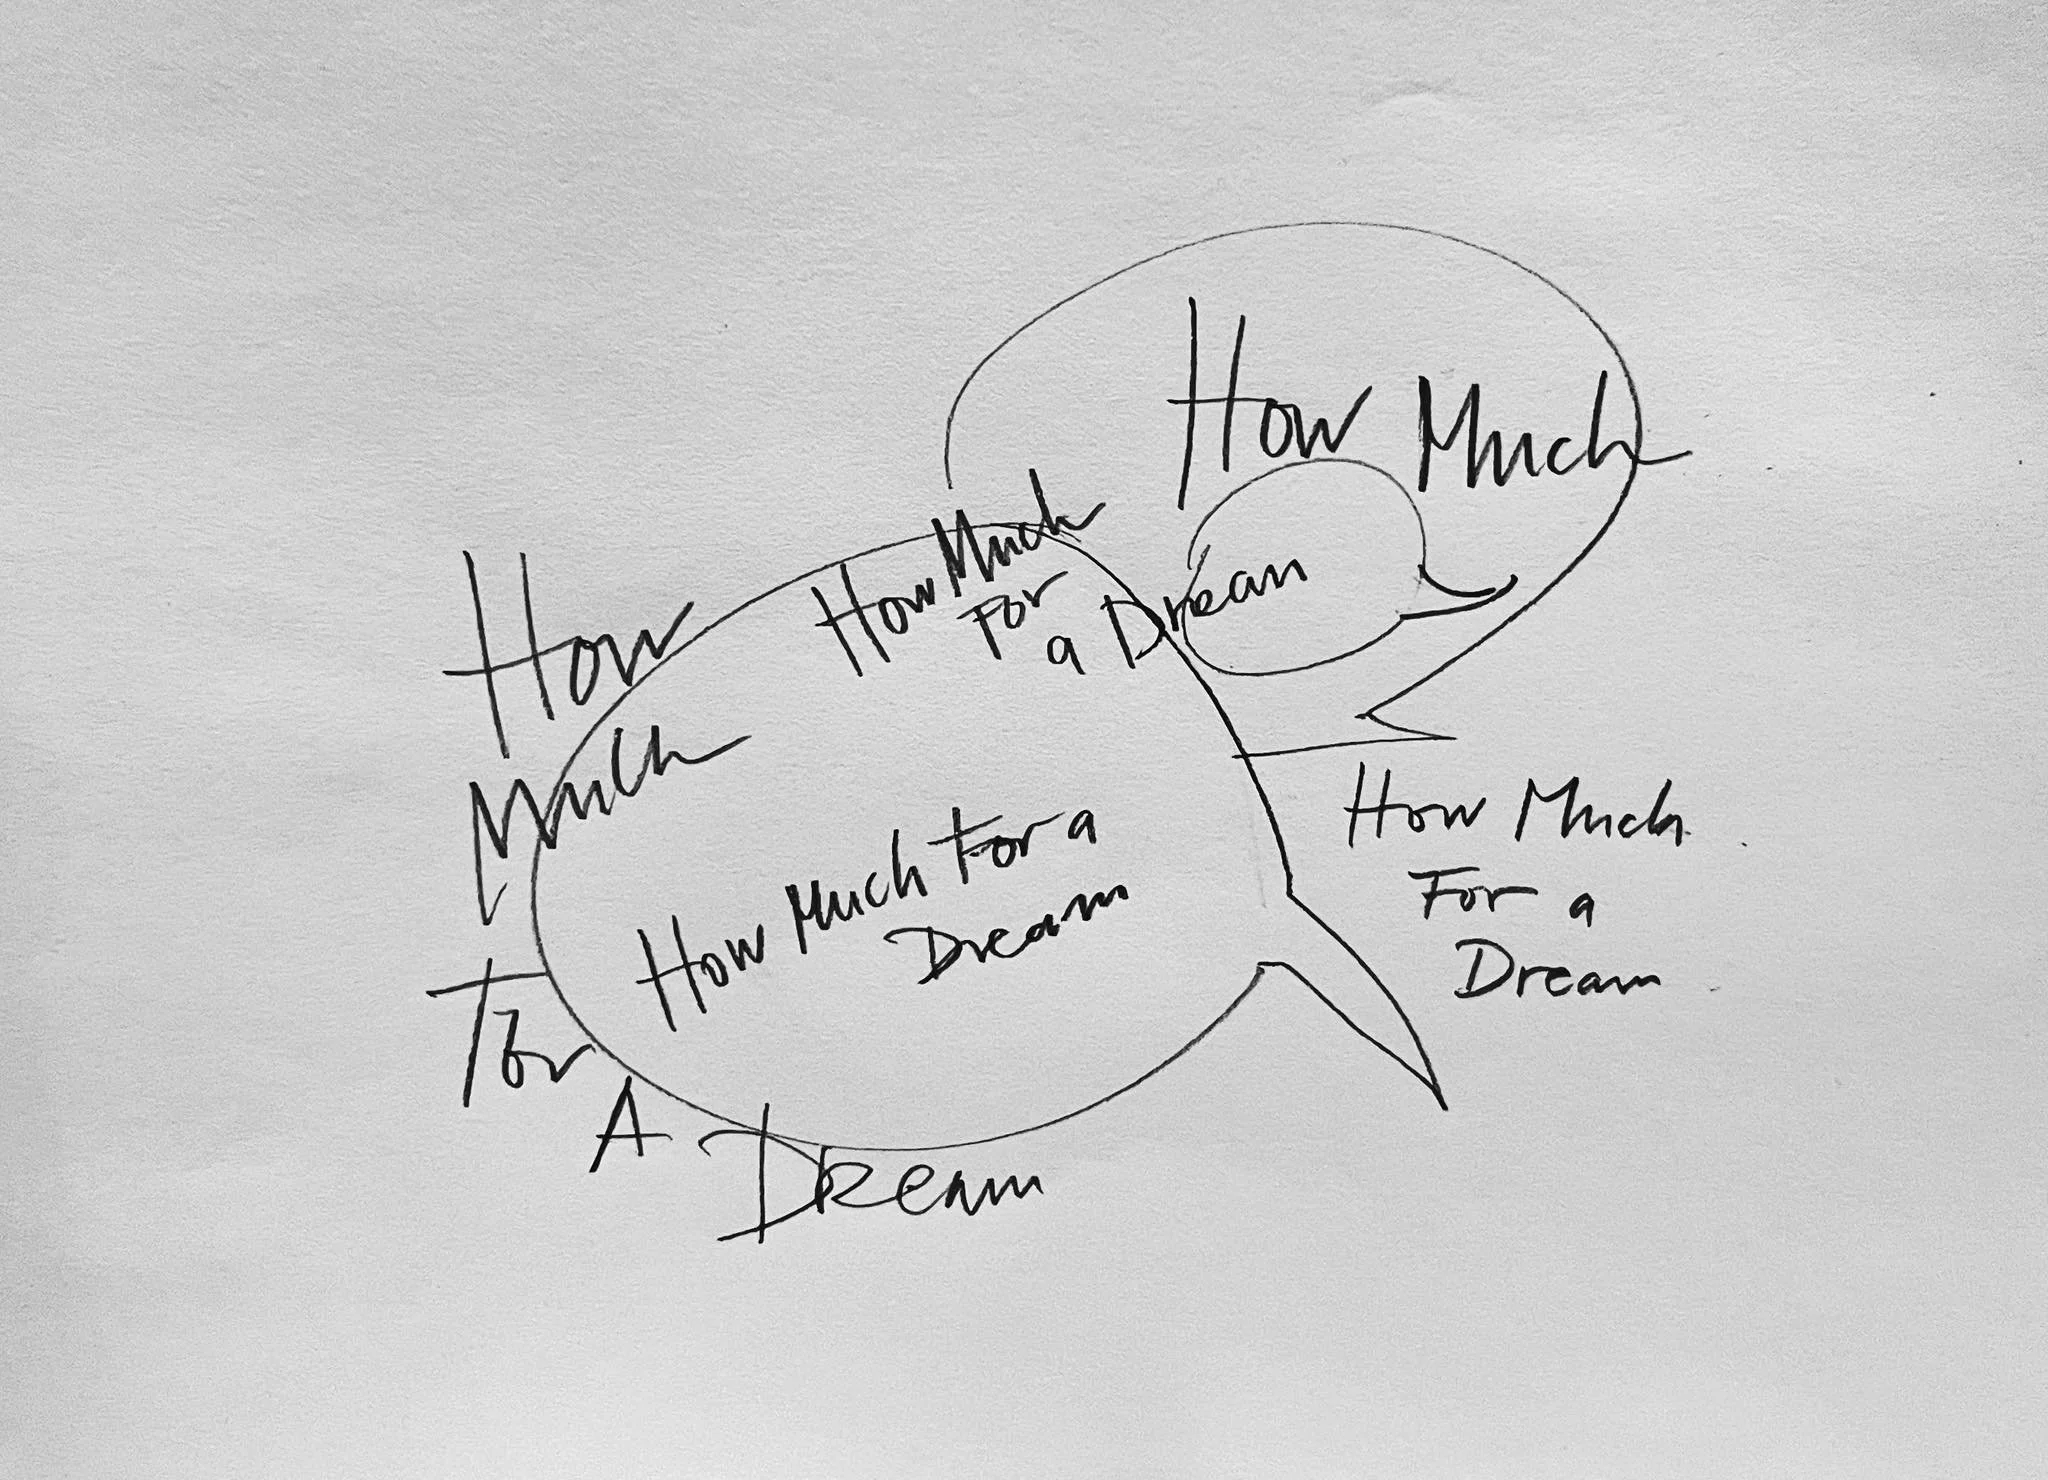 How Much
How Much
For
a Dream
How
Much
For
A
Dream
How Much For a
Dream
How Much
For a
Dream